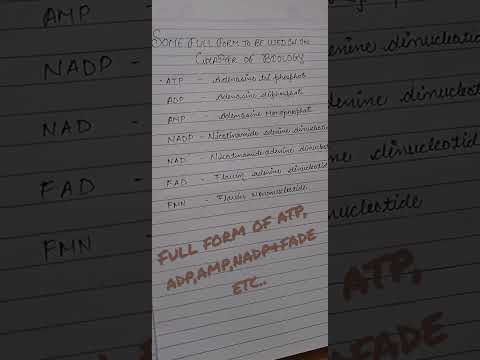 SOME FULL FORM TO BE USED IN THE
CHAPTER OF BIOLOGY
ATP - Adenosine tri phosphat
ADP - Adenosine diphosphat
AMP - Adenosine Monophosphat
NADP - Nicotinamide adenine dinucleotide
NAD - Nicotinamide adenine dinucleotide
FAD - Flavin adenine dinucleotide
FMN - Flavin Mononucleotide
FULL FORM OF ATP,
ADP,AMP,NADP+FADE
ETC..
AMP
NADP -
NAD -
FAD -
FMN -
adenine dinucleotide
dinucleotide
nucleotide
ATP,
+FADE